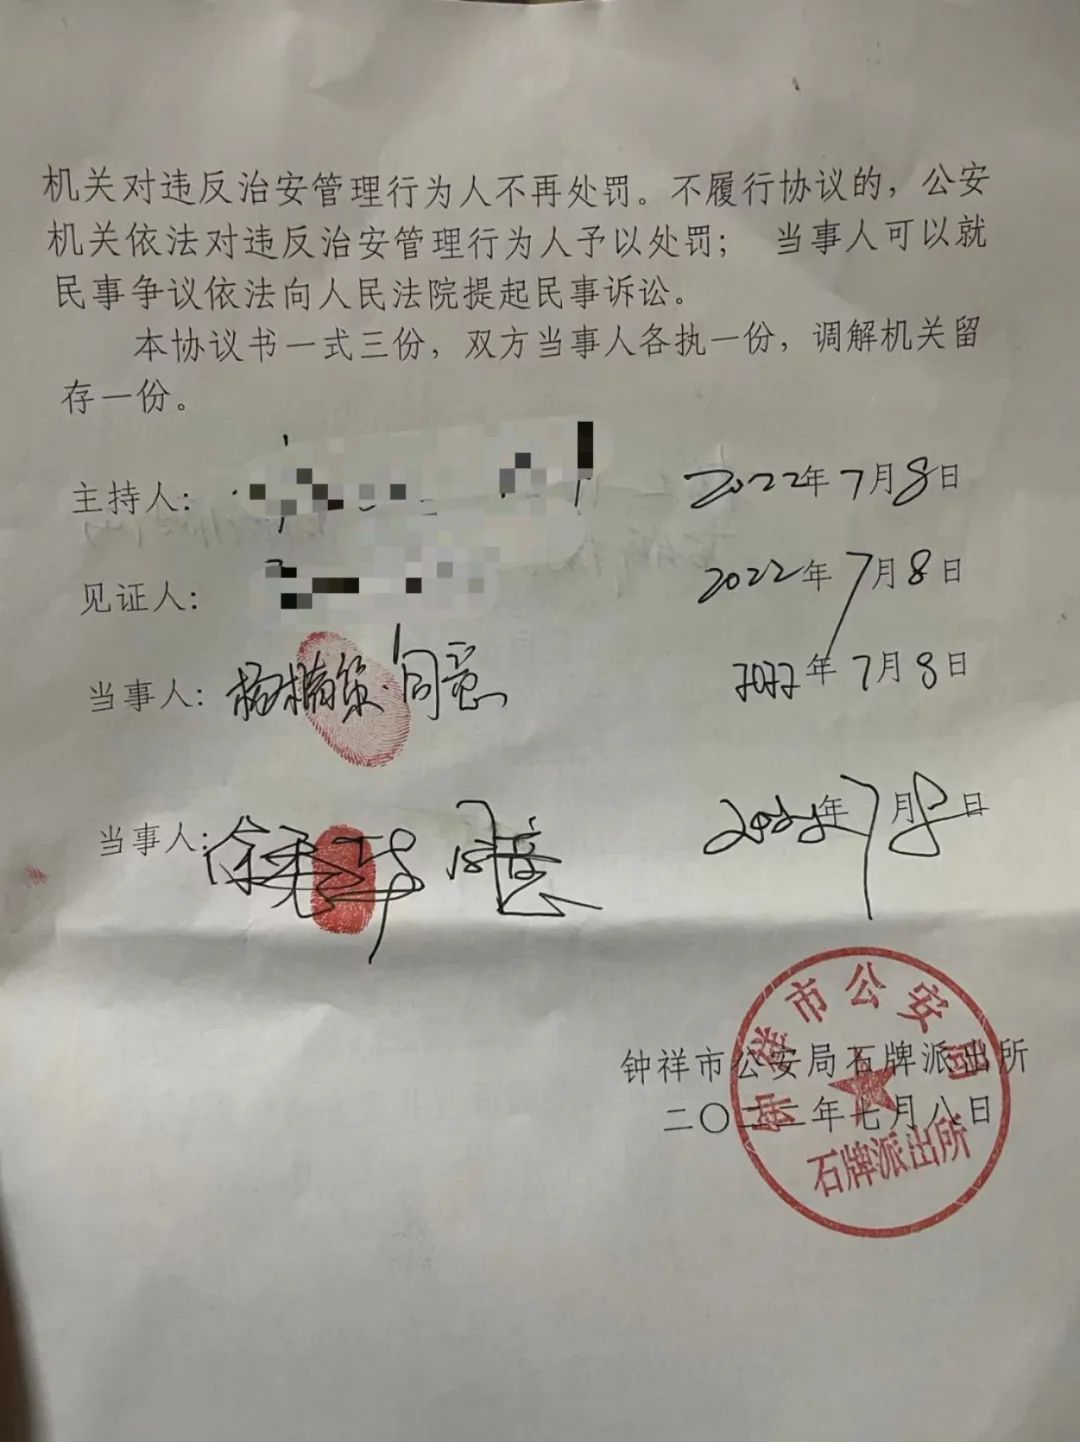 机关对违反治安管理行为人不再处罚。不履行协议的，公安
机关依法对违反治安管理行为人予以处罚； 当事人可以就
民事争议依法向人民法院提起民事诉讼。
本协议书一式三份，双方当事人各执一份，调解机关留
存一份。
主持人： 2022年7月8日
见证人： 2022年7月8日
当事人：杨楠 同意 2022年7月8日
当事人：徐 华 同意 2022年7月8日
钟祥市公安局石牌派出所
二〇二二年七月八日
钟祥市公安局
石牌派出所